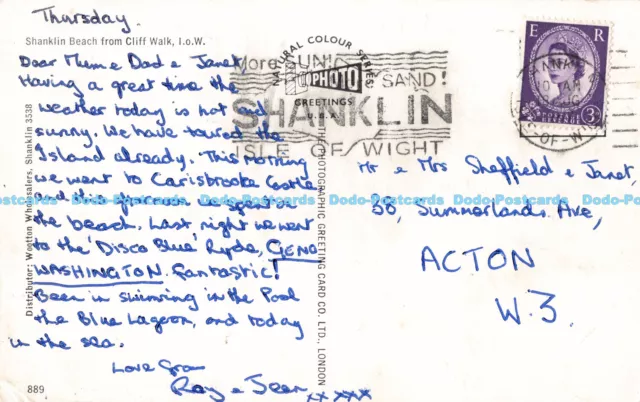 Thursday.
Shanklin Beach from Cliff Walk, I.o.W.
Dear Mum & Dad & Janet,
Having a great time the
weather today is hot and
sunny. We have toured the
Island already. This Morning
we went to Carisbrooke Castle
and this afternoon spent on
the beach. Last night we went
to the 'Disco Blue' Ryde, GENO
WASHINGTON. Fantastic!
Been in swimming in the Pool
the Blue Lagoon, and today
in the sea.
Love from
Ray & Jean xx xxx
889
Distributor: Wootton Wholesalers, Shanklin 3538
NATURAL COLOUR SERIES
PHOTO
GREETINGS
THE PHOTOGRAPHIC GREETING CARD CO. LTD., LONDON
More SUN
SAND!
SHANKLIN
ISLE OF WIGHT
E R
3D
AM
OF-WI
Mr & Mrs Sheffield & Janet,
38, Summerlands Ave,
ACTON
W.3.
Dodo-Postcards Dodo-Postcards Dodo-Postcards Dodo-Postcards Dodo-Postcards